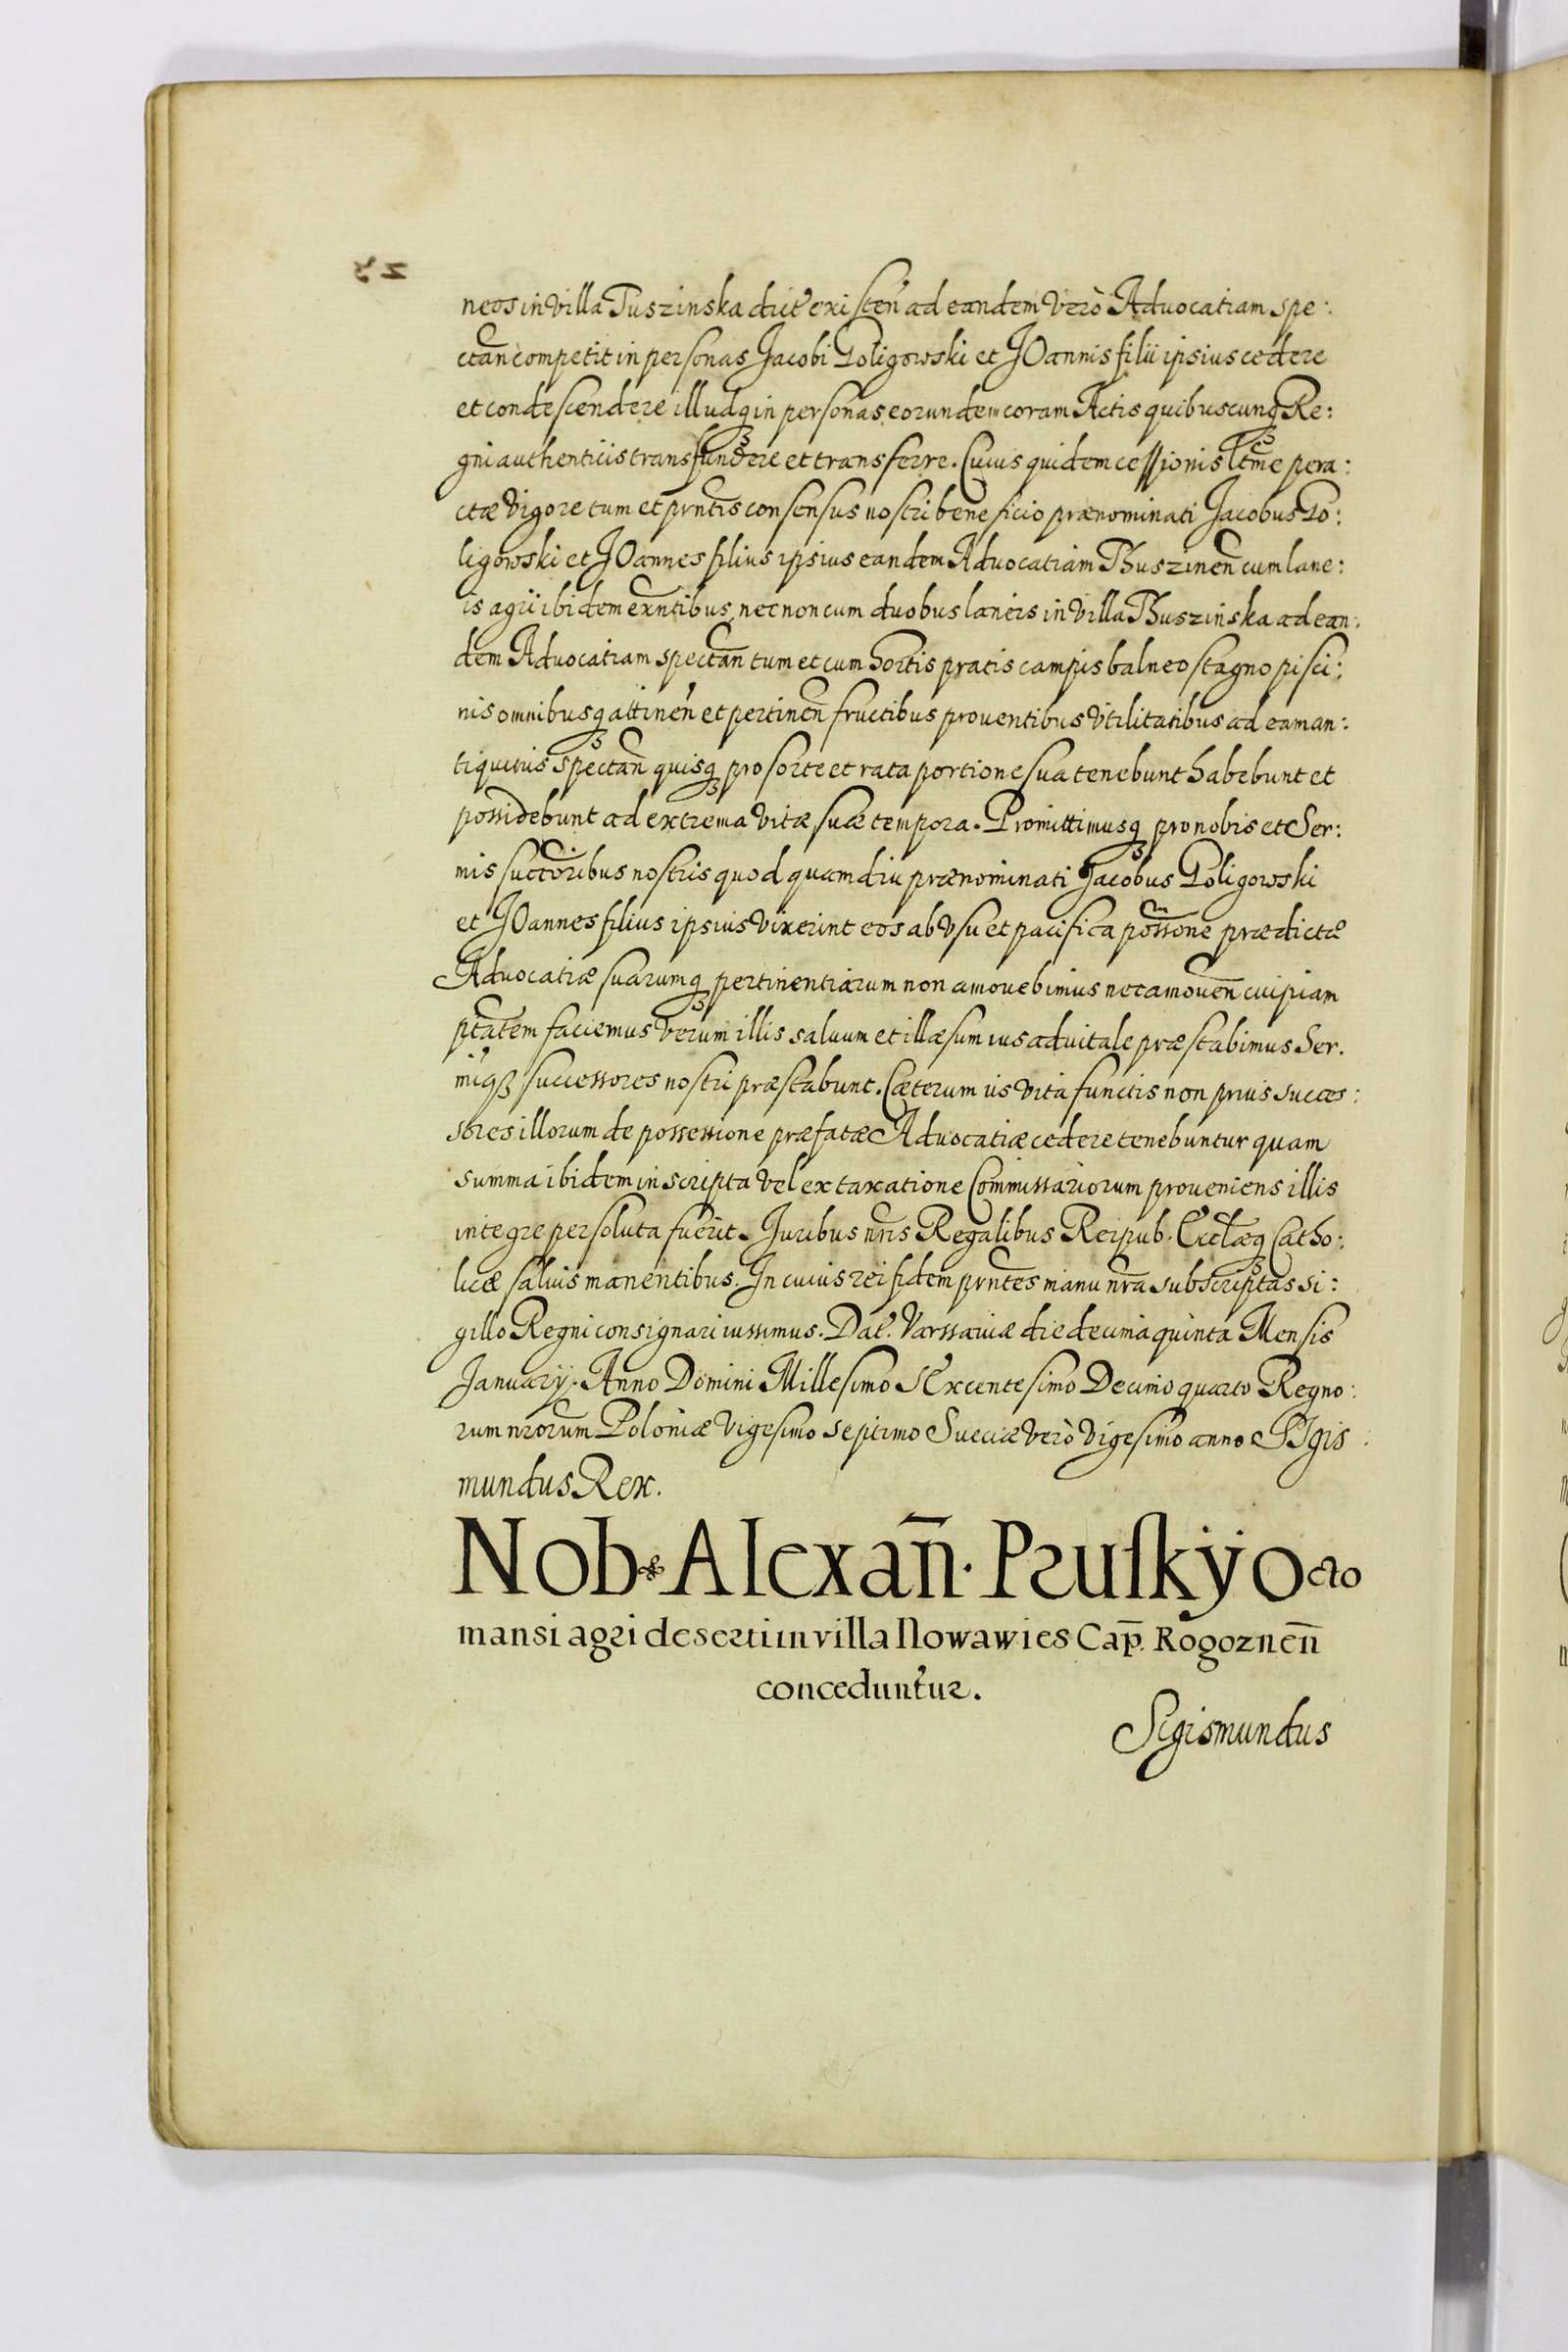 neos in villa Tuszinska dict existen ad eandem verò Advocatiam spe:
ctan competit in personas Jacobi Poligowski et JOannis filii ipsius cedere
et condescendere illudq in personas eorundem coram Actis quibuscunq Re:
gni authenticis transfundere et transferre. Cuius quidem cessionis ltme pera:
ctæ vigore tum et prntis consensus nostri beneficio prænominati Jacobus Po:
ligowski et JOannes filius ipsius eandem Advocatiam Thuszinen cum lane:
is agri ibidem exntibus, nec non cum duobus laneis in villa Thuszinska ad ean:
dem Advocatiam spectan tum et cum hortis pratis campis balneo stagno pisci:
nis omnibusq attinen et pertinen fructibus proventibus utilitatibus ad eam an:
tiquitus spectan quisq pro sorte et rata portione sua tenebunt habebunt et
possidebunt ad extrema vitæ suæ tempora. Promittimusq pro nobis et Ser:
mis succoribus nostris quod quamdiu prænominati Jacobus Poligowski
et JOannes filius ipsius vixerint eos ab usu et pacifica possone prædictæ
Advocatiæ suarumq pertinentiarum non amovebimus nec amoven cuipiam
ptatem faciemus verum illis salvum et illæsum ius advitale præstabimus Ser.
miq successores nostri præstabunt. Cæterum iis vita functis non prius succes:
sores illorum de possessione præfatæ Advocatiæ cedere tenebuntur quam
summa ibidem inscripta vel ex taxatione Commissariorum proveniens illis
integre persoluta fuerit. Juribus nris Regalibus Reipub. Ecclæq Catho:
licæ salvis manentibus. In cuius rei fidem prntes manu nra subscriptas si:
gillo Regni consignari iussimus. Dat. Varssaviæ die decima quinta Mensis
Januarÿ. Anno Domini Millesimo SExcentesimo Decimo quarto Regno:
rum nrorum Poloniæ vigesimo septimo Sueciæ verò vigesimo anno SIgis:
mundus Rex.
Nob. Alexan̄. Pruskÿ octo
mansi agri deserti in villa Nowawies Cap̄. Rogoznen̄
conceduntur.
Sigismundus